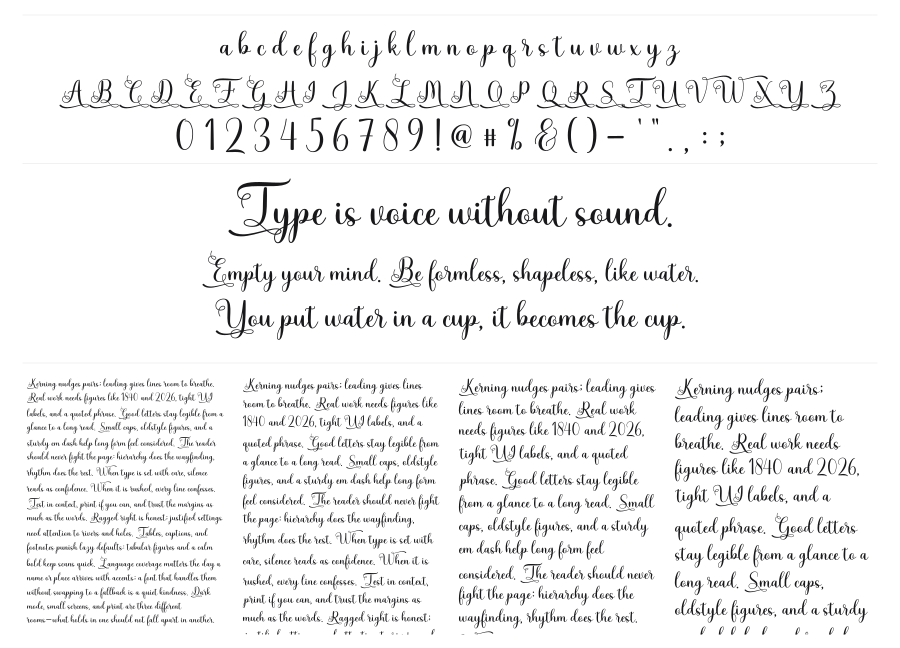 a b c d e f g h i j k l m n o p q r s t u v w x y z
A B C D E F G H I J K L M N O P Q R S T U V W X Y Z
0 1 2 3 4 5 6 7 8 9 ! @ # % & ( ) – ' " . , : ;
Type is voice without sound.
Empty your mind. Be formless, shapeless, like water.
You put water in a cup, it becomes the cup.
Kerning nudges pairs; leading gives lines room to breathe.
Real work needs figures like 1840 and 2026, tight UI
labels, and a quoted phrase. Good letters stay legible from a
glance to a long read. Small caps, oldstyle figures, and a
sturdy em dash help long form feel considered. The reader
should never fight the page: hierarchy does the wayfinding,
rhythm does the rest. When type is set with care, silence
reads as confidence. When it is rushed, every line confesses.
Test in context, print if you can, and trust the margins as
much as the words. Ragged right is honest; justified settings
need attention to rivers and holes. Tables, captions, and
footnotes punish lazy defaults: tabular figures and a calm
bold keep scans quick. Language coverage matters the day a
name or place arrives with accents: a font that handles them
without swapping to a fallback is a quiet kindness. Dark
mode, small screens, and print are three different
rooms—what holds in one should not fall apart in another.
Kerning nudges pairs; leading gives lines
room to breathe. Real work needs figures like
1840 and 2026, tight UI labels, and a
quoted phrase. Good letters stay legible from
a glance to a long read. Small caps, oldstyle
figures, and a sturdy em dash help long form
feel considered. The reader should never fight
the page: hierarchy does the wayfinding,
rhythm does the rest. When type is set with
care, silence reads as confidence. When it is
rushed, every line confesses. Test in context,
print if you can, and trust the margins as
much as the words. Ragged right is honest;
Kerning nudges pairs; leading gives
lines room to breathe. Real work
needs figures like 1840 and 2026,
tight UI labels, and a quoted
phrase. Good letters stay legible
from a glance to a long read. Small
caps, oldstyle figures, and a sturdy
em dash help long form feel
considered. The reader should never
fight the page: hierarchy does the
wayfinding, rhythm does the rest.
Kerning nudges pairs;
leading gives lines room to
breathe. Real work needs
figures like 1840 and 2026,
tight UI labels, and a
quoted phrase. Good letters
stay legible from a glance to a
long read. Small caps,
oldstyle figures, and a sturdy